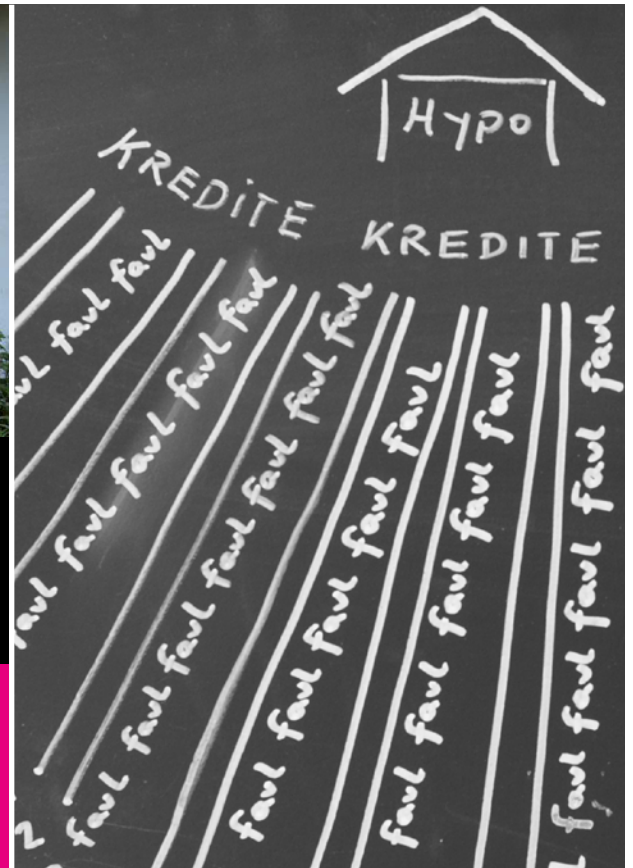 Hypo
KREDITE KREDITE
faul faul
faul faul faul faul faul
faul faul faul faul faul faul faul
faul faul faul faul faul
faul faul faul faul faul
faul faul faul faul faul faul